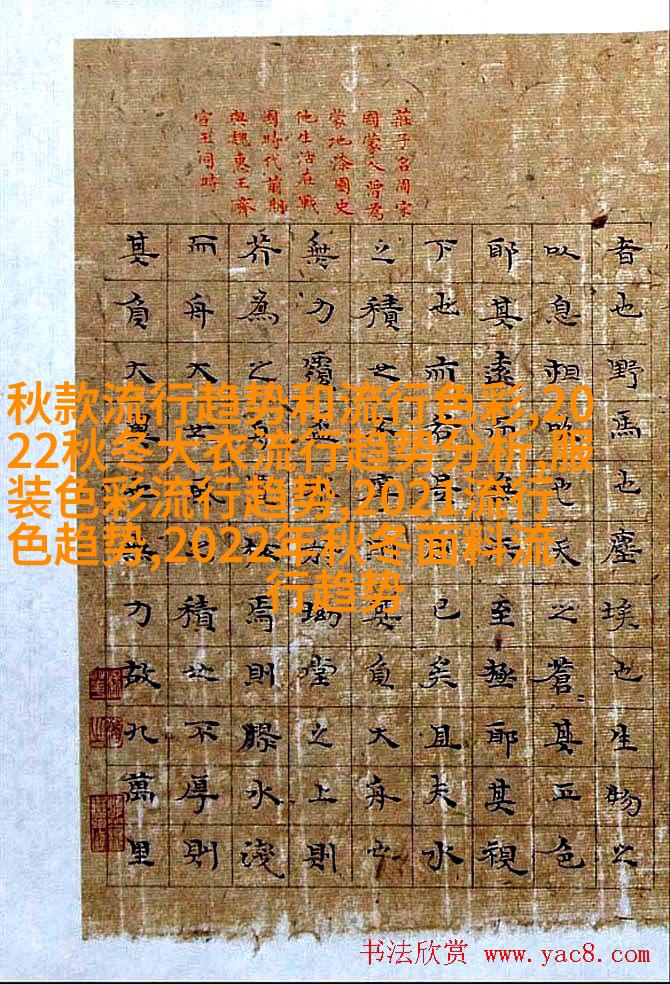 莊子名周宋
國蒙人曾為
蒙地漆園史
他生活在戰
國時代前期
與魏惠王齊
宣王同時
者也野馬也塵埃也生物之
以息相吹也天之蒼〻其正色
耶其遠而無所至極耶其視
下也而若是則已矣且夫水
之積也不厚則其負大舟也
無力覆盃水於坳堂之上則
芥為之舟置杯焉則膠水淺
而舟大也風之積也不厚則
其負大翼也無力故九萬里
秋款流行趋势和流行色彩,20
22秋冬大衣流行趋势分析,服
装色彩流行趋势,2021流行
色趋势,2022年秋冬面料流
行趋势
书法欣赏 www.yac8.com